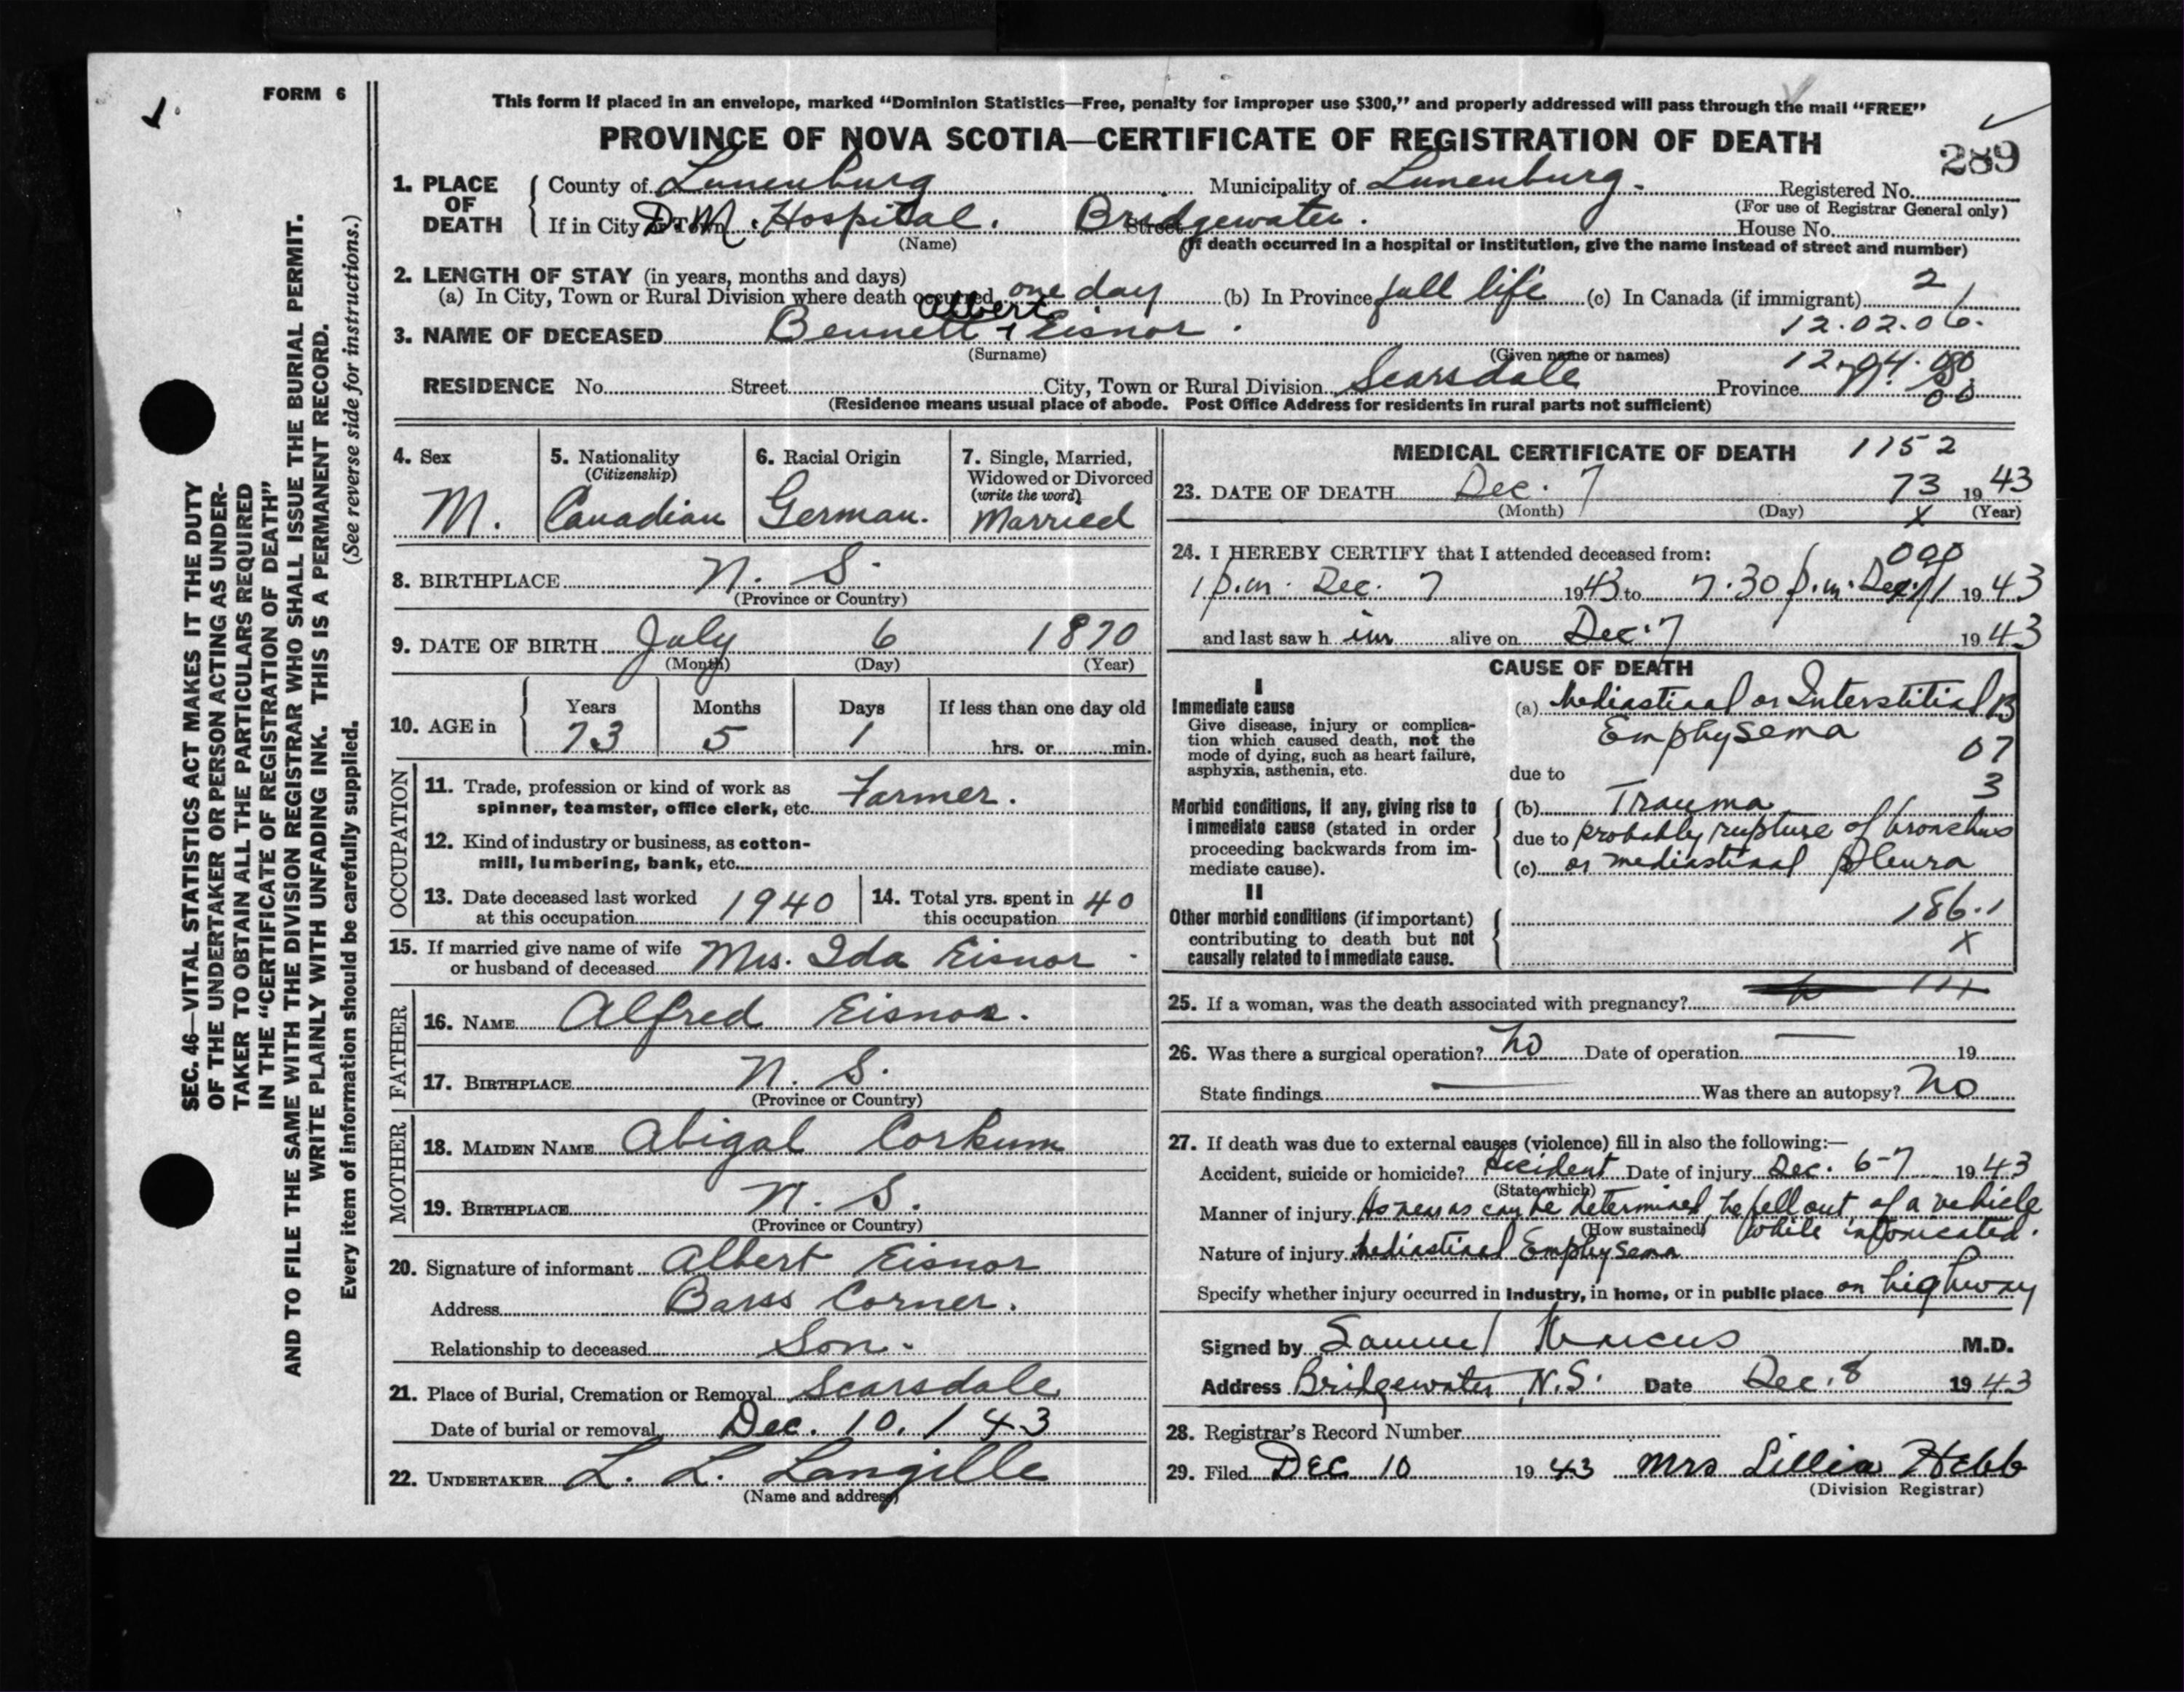 FORM 6
This form if placed in an envelope, marked "Dominion Statistics—Free, penalty for improper use $300," and properly addressed will pass through the mail "FREE"
PROVINCE OF NOVA SCOTIA—CERTIFICATE OF REGISTRATION OF DEATH
289
1. PLACE OF DEATH { County of Lunenburg Municipality of Lunenburg. Registered No.
(For use of Registrar General only)
If in City or Town D. M. Hospital. Bridgewater. Street House No.
(Name) (If death occurred in a hospital or institution, give the name instead of street and number)
2. LENGTH OF STAY (in years, months and days)
(a) In City, Town or Rural Division where death occurred one day (b) In Province full life (c) In Canada (if immigrant) 21
Albert 12.02.06.
3. NAME OF DECEASED Bennett + Eisnor.
(Surname) (Given name or names)
RESIDENCE No. Street City, Town or Rural Division Scarsdale Province N. S.
(Residence means usual place of abode. Post Office Address for residents in rural parts not sufficient)
4. Sex M.
5. Nationality (Citizenship) Canadian
6. Racial Origin German.
7. Single, Married, Widowed or Divorced (write the word) Married
8. BIRTHPLACE N. S.
(Province or Country)
9. DATE OF BIRTH July 6 1870
(Month) (Day) (Year)
10. AGE in { Years Months Days If less than one day old
73 5 1 hrs. or min.
OCCUPATION
11. Trade, profession or kind of work as spinner, teamster, office clerk, etc. Farmer.
12. Kind of industry or business, as cotton-
mill, lumbering, bank, etc.
13. Date deceased last worked at this occupation 1940
14. Total yrs. spent in this occupation 40
15. If married give name of wife or husband of deceased Mrs. Ida Eisnor
FATHER
16. NAME Alfred Eisnor.
17. BIRTHPLACE N. S.
(Province or Country)
MOTHER
18. MAIDEN NAME Abigal Corkum
19. BIRTHPLACE N. S.
(Province or Country)
20. Signature of informant Albert Eisnor
Address Barss Corner.
Relationship to deceased Son.
21. Place of Burial, Cremation or Removal Scarsdale
Date of burial or removal Dec. 10, 143
22. UNDERTAKER L. L. Langille
(Name and address)
MEDICAL CERTIFICATE OF DEATH 1152
23. DATE OF DEATH Dec. 7 73 1943
(Month) (Day) x (Year)
24. I HEREBY CERTIFY that I attended deceased from: 000
1 p.m. Dec. 7 1943 to 7.30 p.m. Dec. 1943
and last saw h im alive on Dec. 7 1943
CAUSE OF DEATH
I
Immediate cause
Give disease, injury or complica-
tion which caused death, not the
mode of dying, such as heart failure,
asphyxia, asthenia, etc.
(a) Mediastinal or Interstitial B
Emphysema 07
due to 3
Morbid conditions, if any, giving rise to
immediate cause (stated in order
proceeding backwards from im-
mediate cause).
(b) Trauma
due to probably rupture of bronchus
(c) or mediastinal pleura
II
Other morbid conditions (if important)
contributing to death but not
causally related to immediate cause.
186.1
x
25. If a woman, was the death associated with pregnancy?
26. Was there a surgical operation? no Date of operation — 19
State findings — Was there an autopsy? no
27. If death was due to external causes (violence) fill in also the following:—
Accident, suicide or homicide? Accident Date of injury Dec. 6-7 1943
(State which)
Manner of injury As near as can be determined, he fell out of a vehicle
(How sustained) while intoxicated.
Nature of injury Mediastinal Emphysema
Specify whether injury occurred in industry, in home, or in public place on highway
Signed by Samuel Marcus M.D.
Address Bridgewater, N.S. Date Dec. 8 1943
28. Registrar's Record Number
29. Filed Dec 10 1943 Mrs Lillia Hebb
(Division Registrar)
SEC. 46—VITAL STATISTICS ACT MAKES IT THE DUTY
OF THE UNDERTAKER OR PERSON ACTING AS UNDER-
TAKER TO OBTAIN ALL THE PARTICULARS REQUIRED
IN THE "CERTIFICATE OF REGISTRATION OF DEATH"
AND TO FILE THE SAME WITH THE DIVISION REGISTRAR WHO SHALL ISSUE THE BURIAL PERMIT.
WRITE PLAINLY WITH UNFADING INK. THIS IS A PERMANENT RECORD.
Every item of information should be carefully supplied. (See reverse side for instructions.)